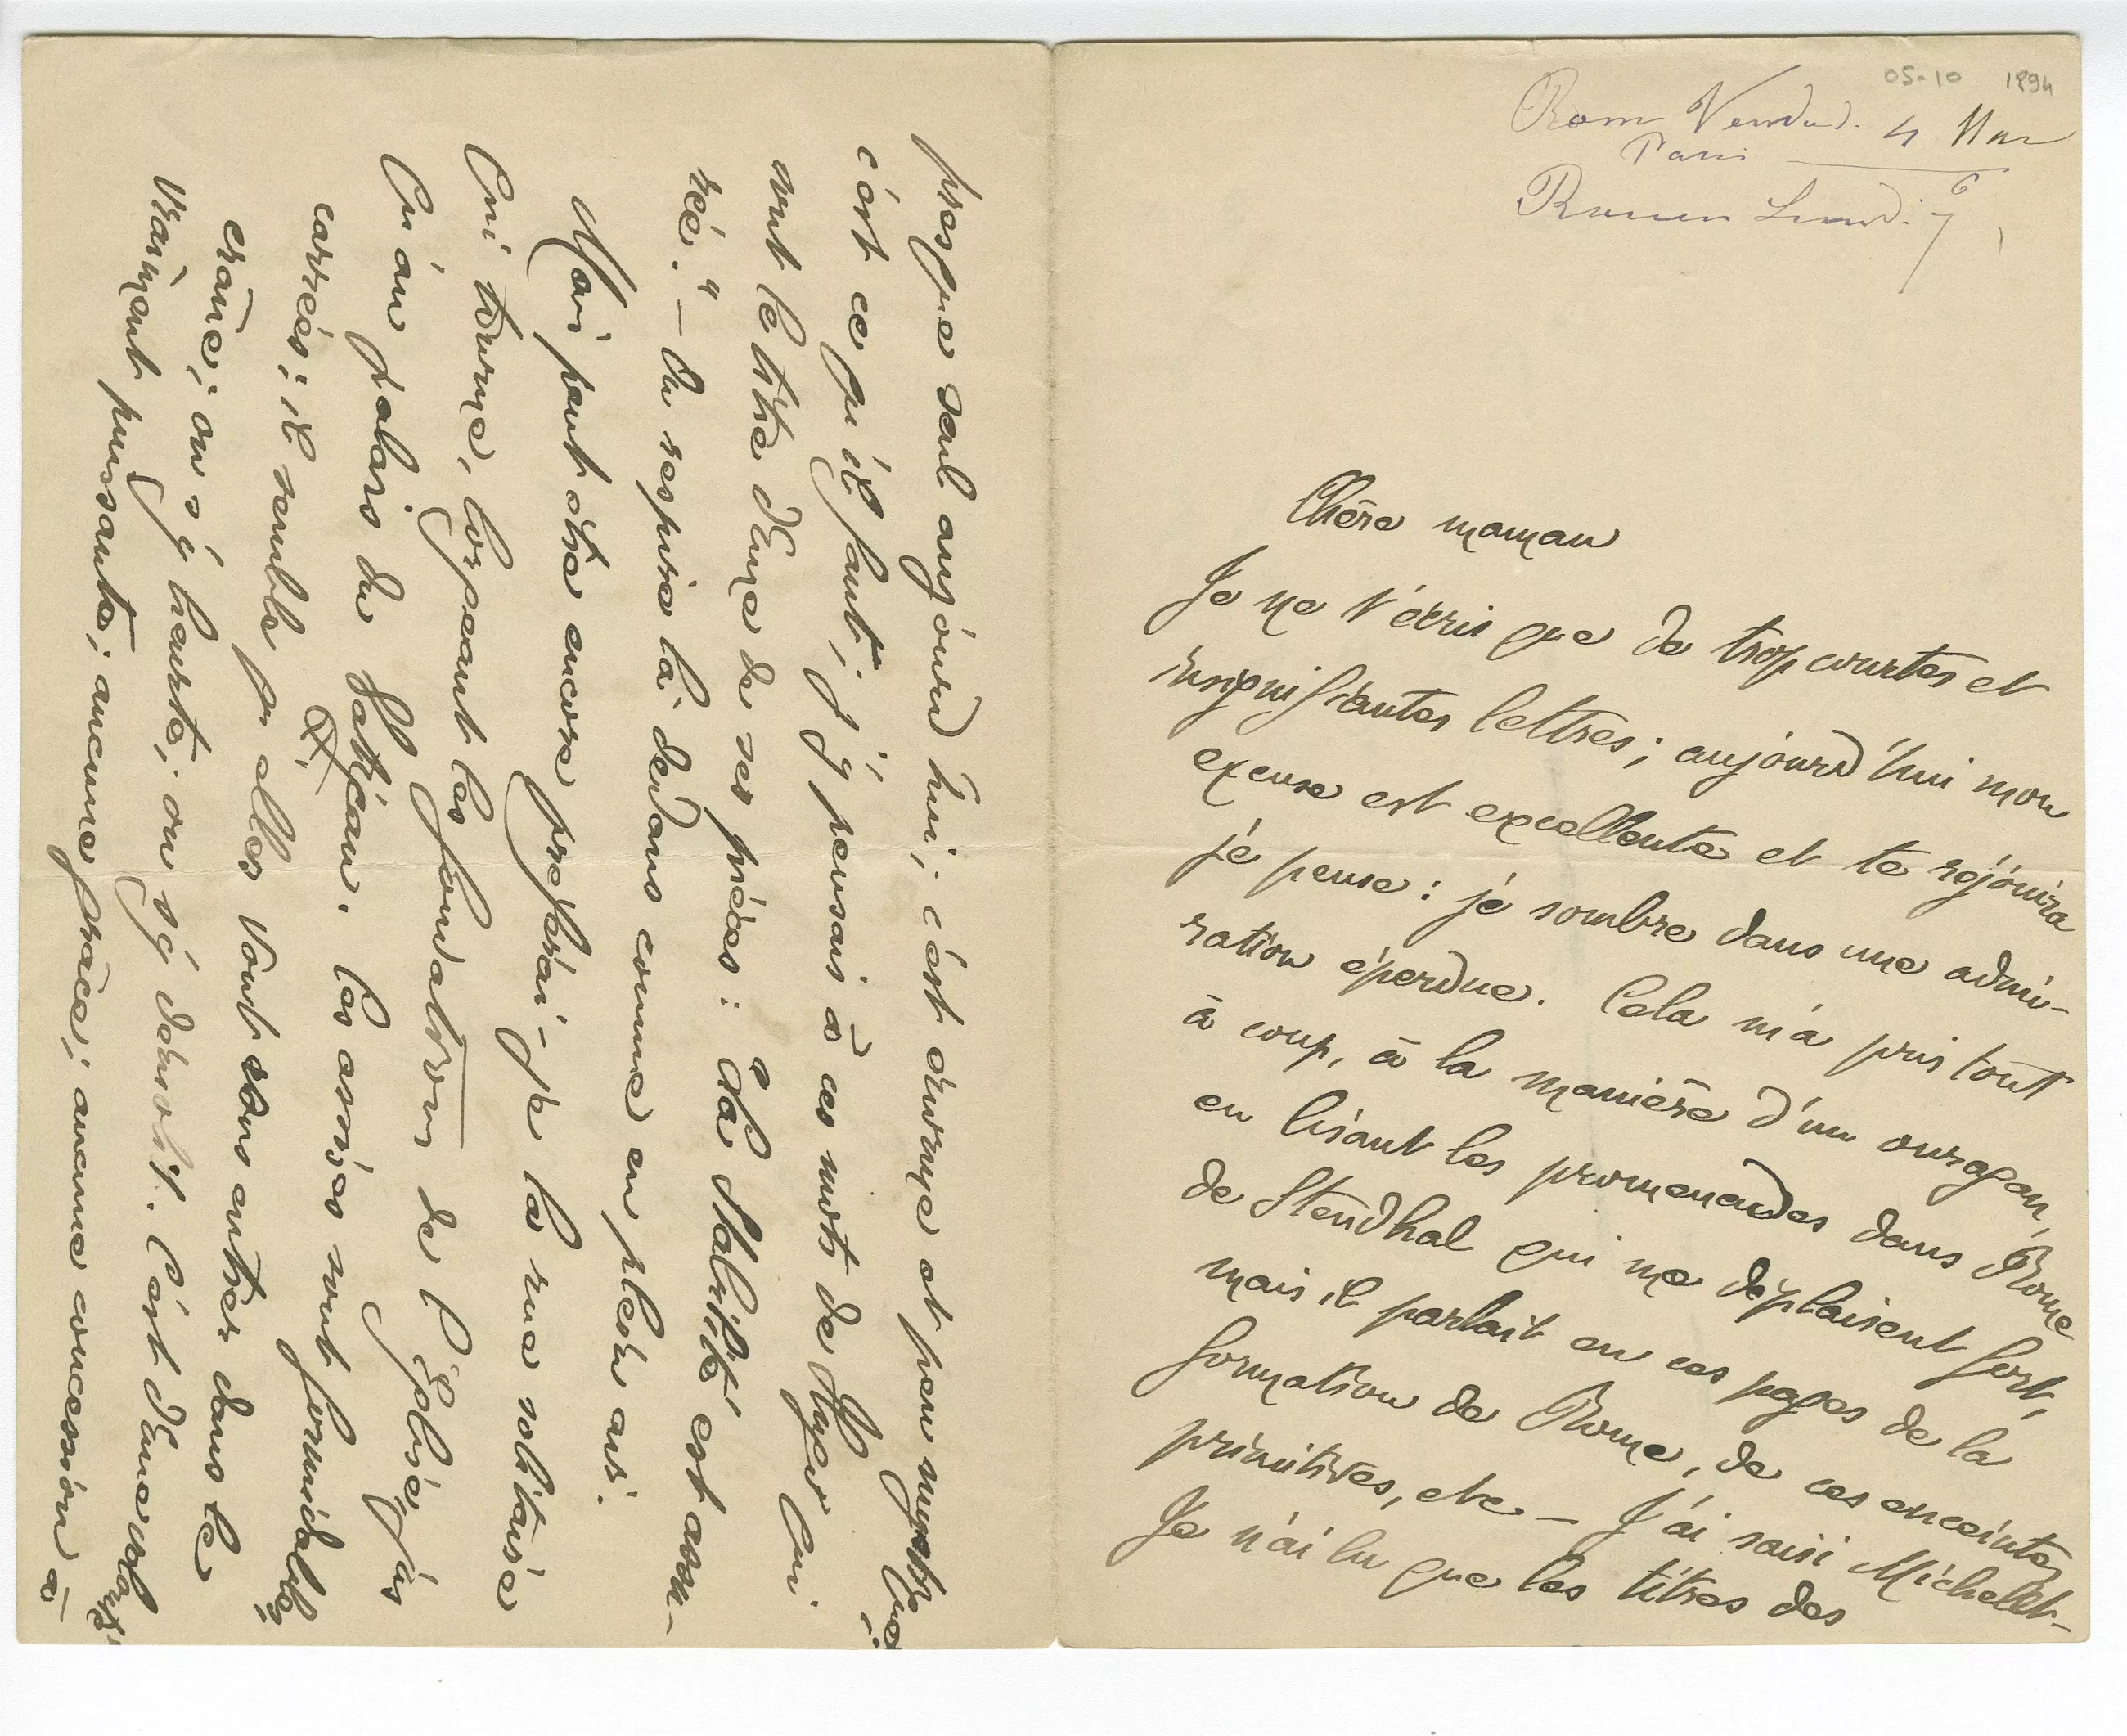 05-10 1894
Rom Vendred. 4 Mar
Paris 6
Rouen Lundi 7
Chère maman
Je ne t'écris que de trop courtes et
insignifiantes lettres ; aujourd'hui mon
excuse est excellente et te réjouira
je pense : je sombre dans une admi-
ration éperdue. Cela m'a pris tout
à coup, à la manière d'un ouragan,
en lisant les promenades dans Rome
de Stendhal qui me déplaisent fort,
mais il parlait en ces pages de la
formation de Rome, de ces enceintes
primitives, etc — J'ai saisi Michelet -
Je n'ai lu que les titres des
presque seul aujourd'hui ; c'est énorme et peu mystique ;
c'est ce qu'il faut ; j'y pensais à ces mots de Hugo qui
sont le titre d'une de ses pièces : "La Stabilité est assu-
rée." — On respire là dedans comme en plein air.
Moi peut être encore préférai-je la rue solitaire
qui tourne, longeant les fondations de l'église, jus
qu'au palais du Vatican. Les assises sont formidables,
carrées ; il semble qu'elles vont vous entrer dans le
crâne ; on s'y heurte ; on s'y démolit. C'est d'une volonté
vraiment puissante ; aucune grâce ; aucune concession à